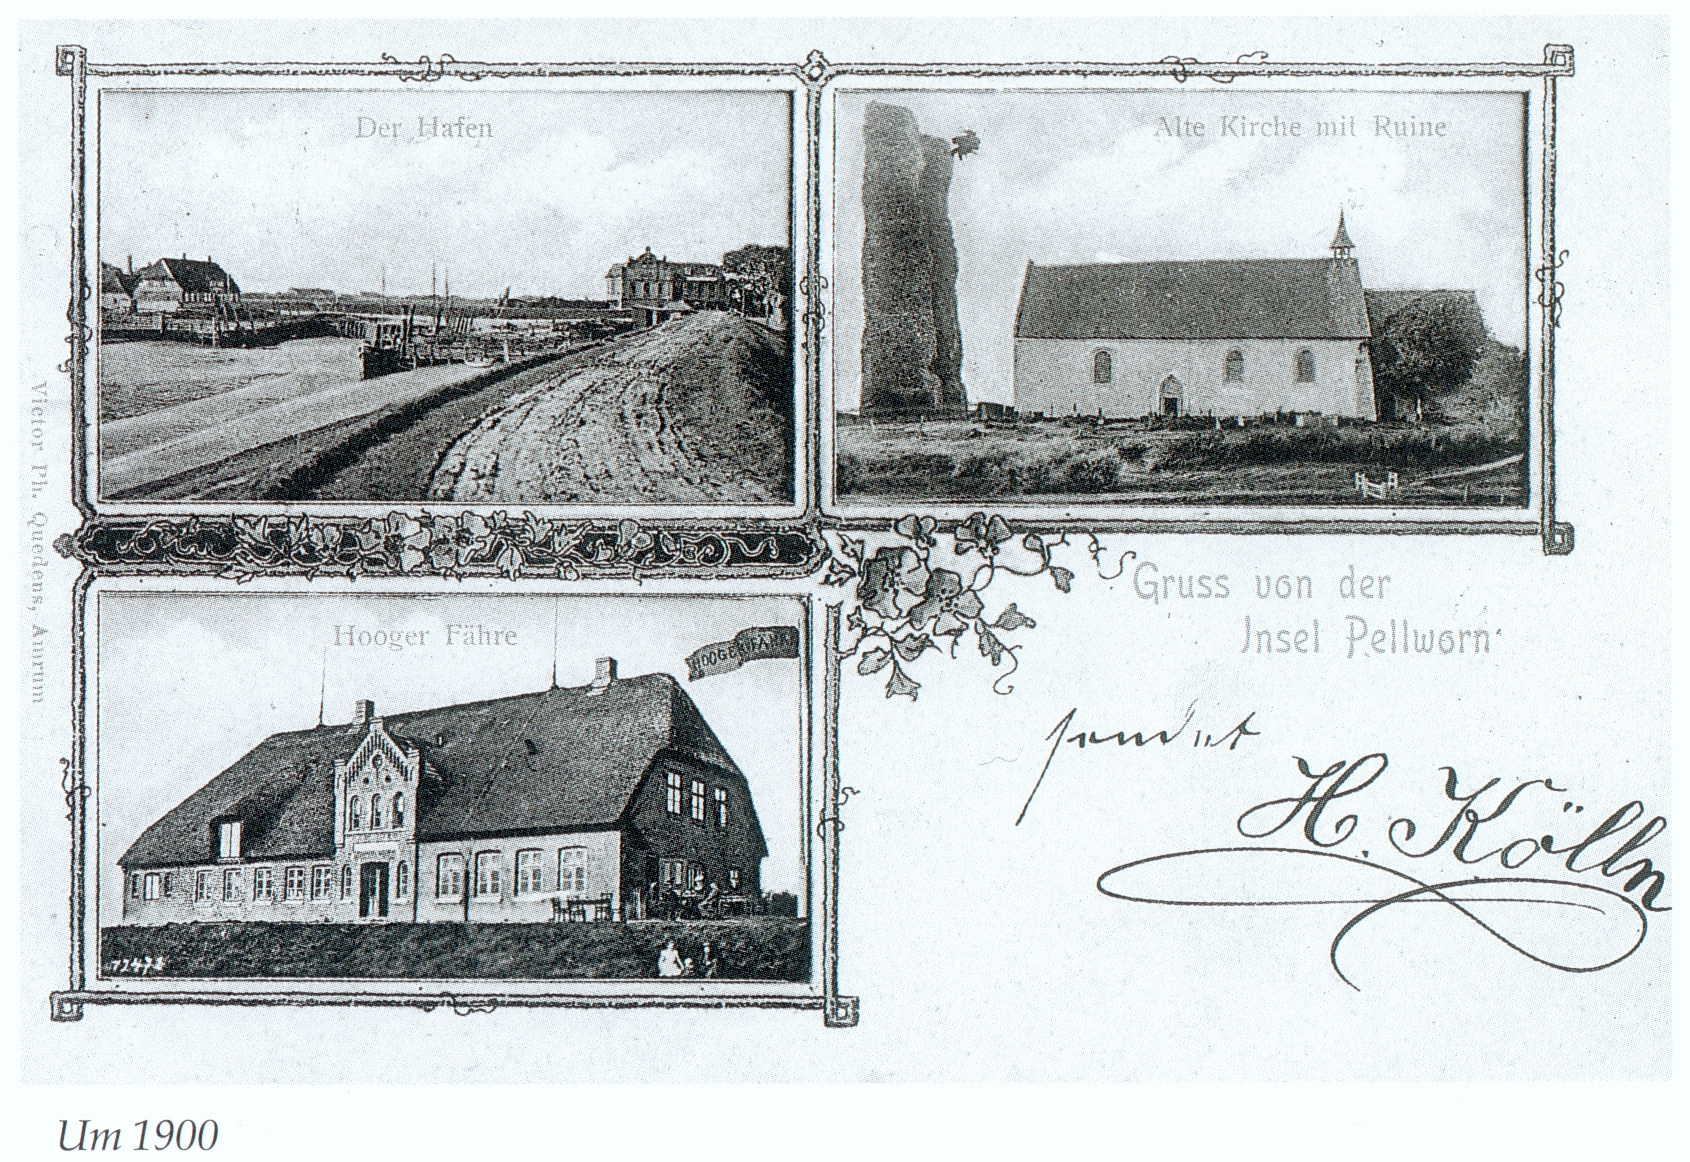 Der Hafen
Alte Kirche mit Ruine
Victor Ph. Quedens, Amrum
Gruss von der
Insel Pellworm
Hooger Fähre
HOOGER FÄHRE
sendet
H. Kölln
Um 1900